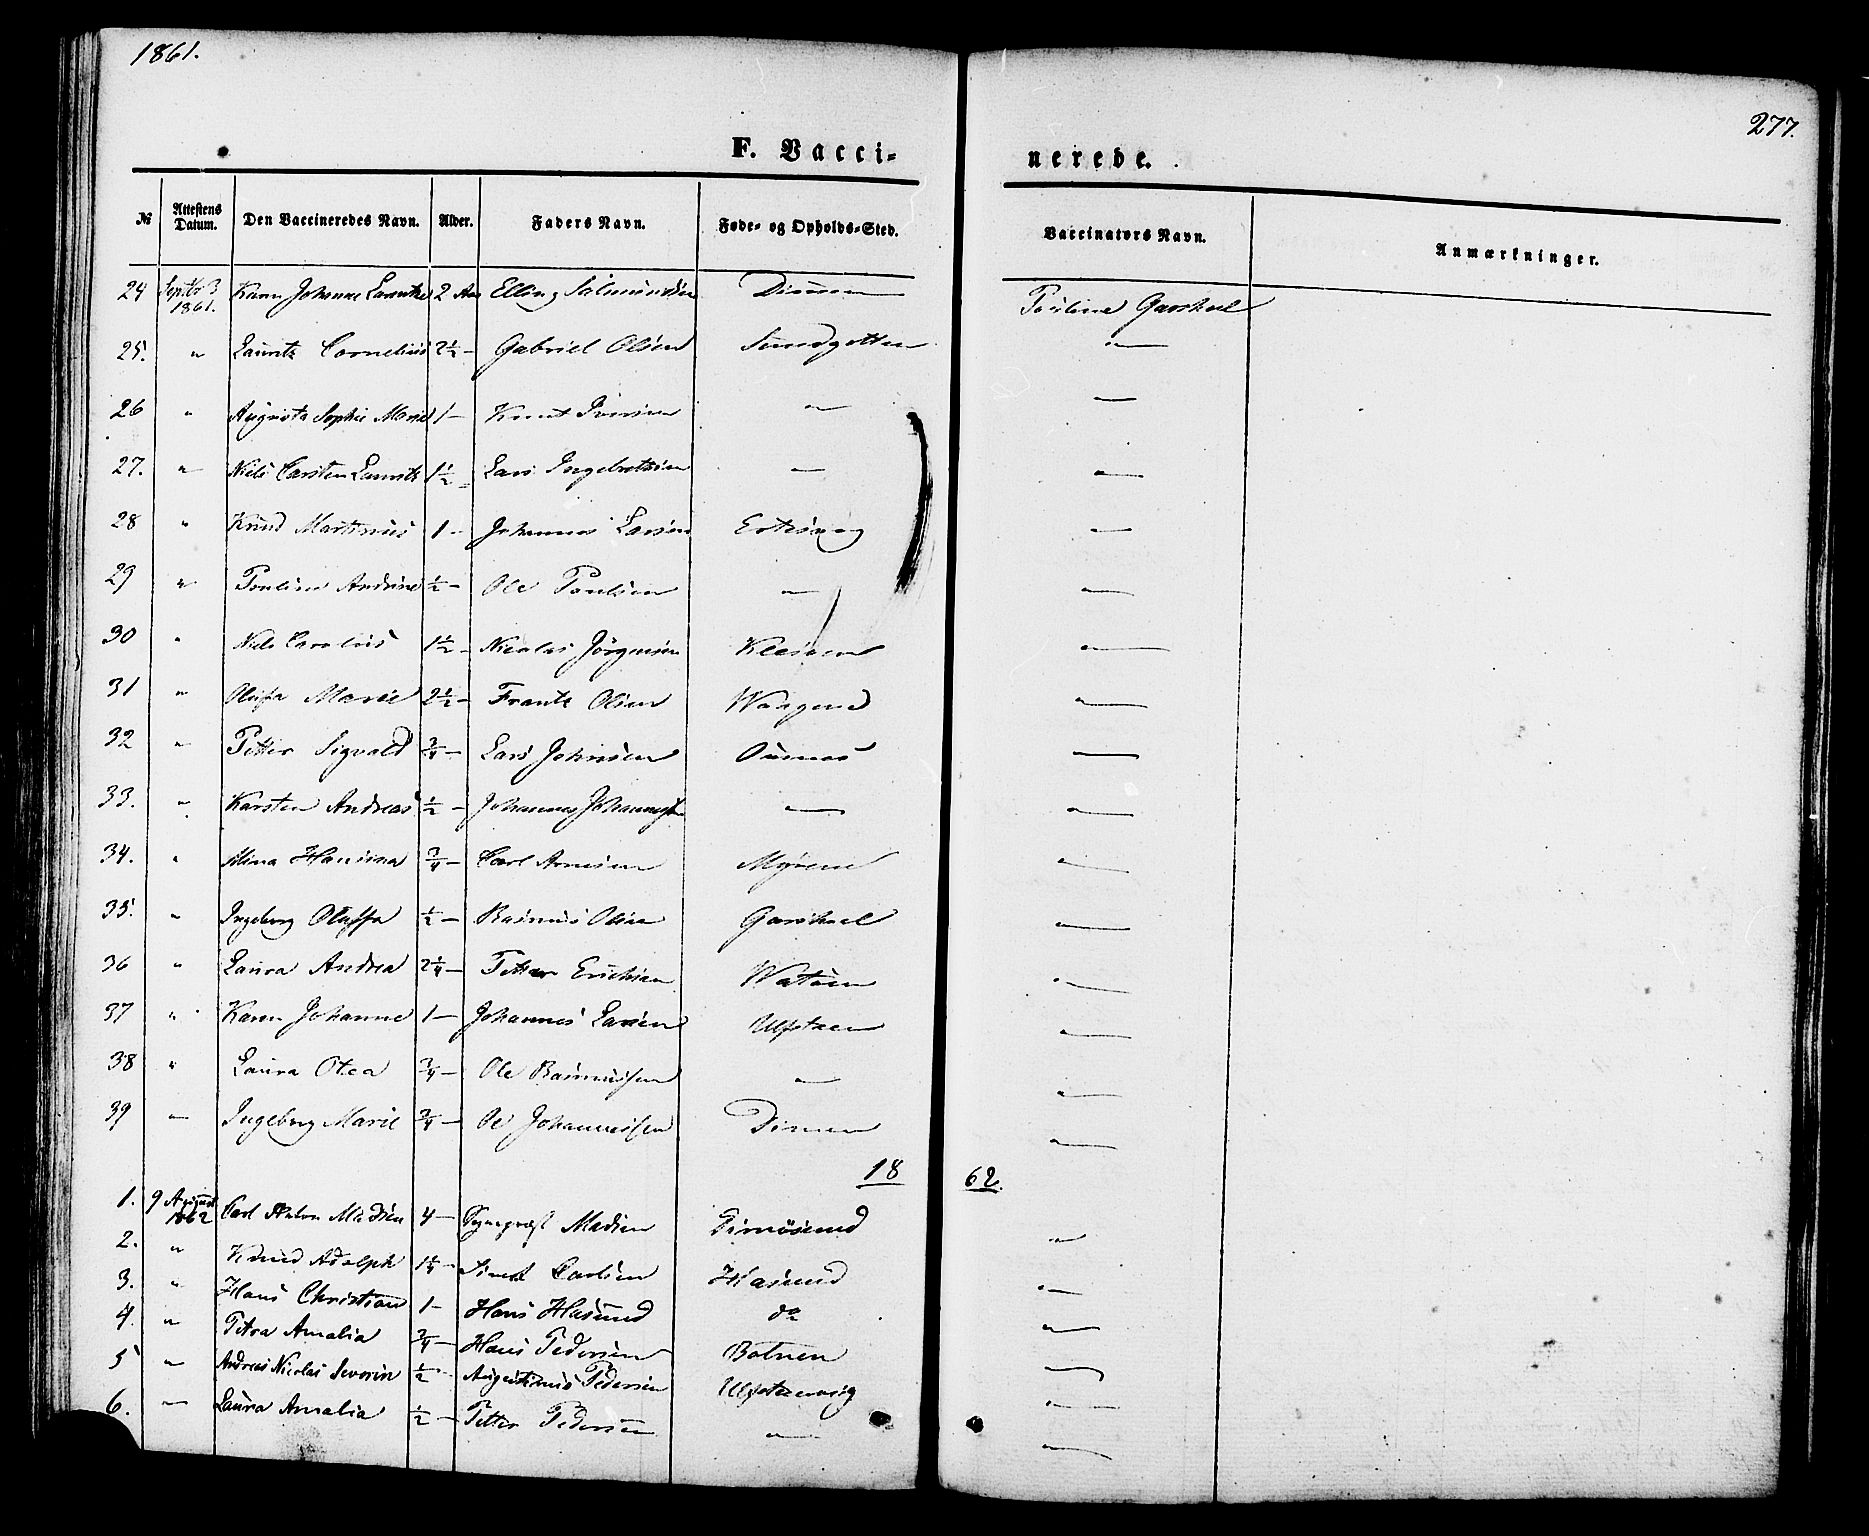 1861.
277.
F. Vacci-nerede.
№ Attestens Datum. Den Vaccineredes Navn. Alder. Faders Navn. Føde- og Opholds-Sted. Vaccinators Navn. Anmærkninger.
24 Septbr 3 1861. Karen Johanne Lauritze 2 Aar Elling Salmundsen Dimmen Pauline Garshol
25. " Lauritz Cornelius 2½ – Gabriel Olsen Sundgotten " —
26 " Augusta Sophie Marie 1 – Knut Iversen " — " —
27. " Niels Carsten Lauritz 1½ – Lars Ingebretsen " — " —
28 " Knud Martinus 1 – Johannes Larsen Eikesvog " —
29 " Pouline Andrine ½ – Ole Poulsen " — " —
30 " Niels Carolus 1½ – Nicolai Jörgensen Kleiven " —
31 " Olufa Marie 2½ – Frantz Olsen Waagend " —
32 " Petter Sigvald ¾ – Lars Johnsen Osnes " —
33. " Karsten Andreas ½ – Johannes " — " —
34. " Mina Hansina ¾ – Carl Arnesen Myrene " —
35. " Ingeborg Oluffa ½ – Rasmus Olsen Garshol " —
36 " Laura Andrea 2¼ – Petter Erichsen " —
37 " Karen Johanne 1 – Johannes Larsen Ulfsteen " —
38 " Laura Otea ¾ – Ole Rasmussen " — " —
39 " Ingeborg Marie ¾ – Ole Johannessen Dimmen " —
1862.
1. 9 August 1862 Carl Anton Madsen 4 – Sogneprest Madsen Dimösund " —
2. " Knud Adolph 1¼ – Carlsen Hasund " —
3. " Hans Christian 1 – Hans Hasund do " —
4. " Petra Amalia ¾ – Hans Pedersen Botnen " —
5 " Andreas Nicolai Severin ½ – Augustinus Pedersen Ulfsteenvig " —
6. " Laura Amalia ½ – Petter Pedersen " — " —